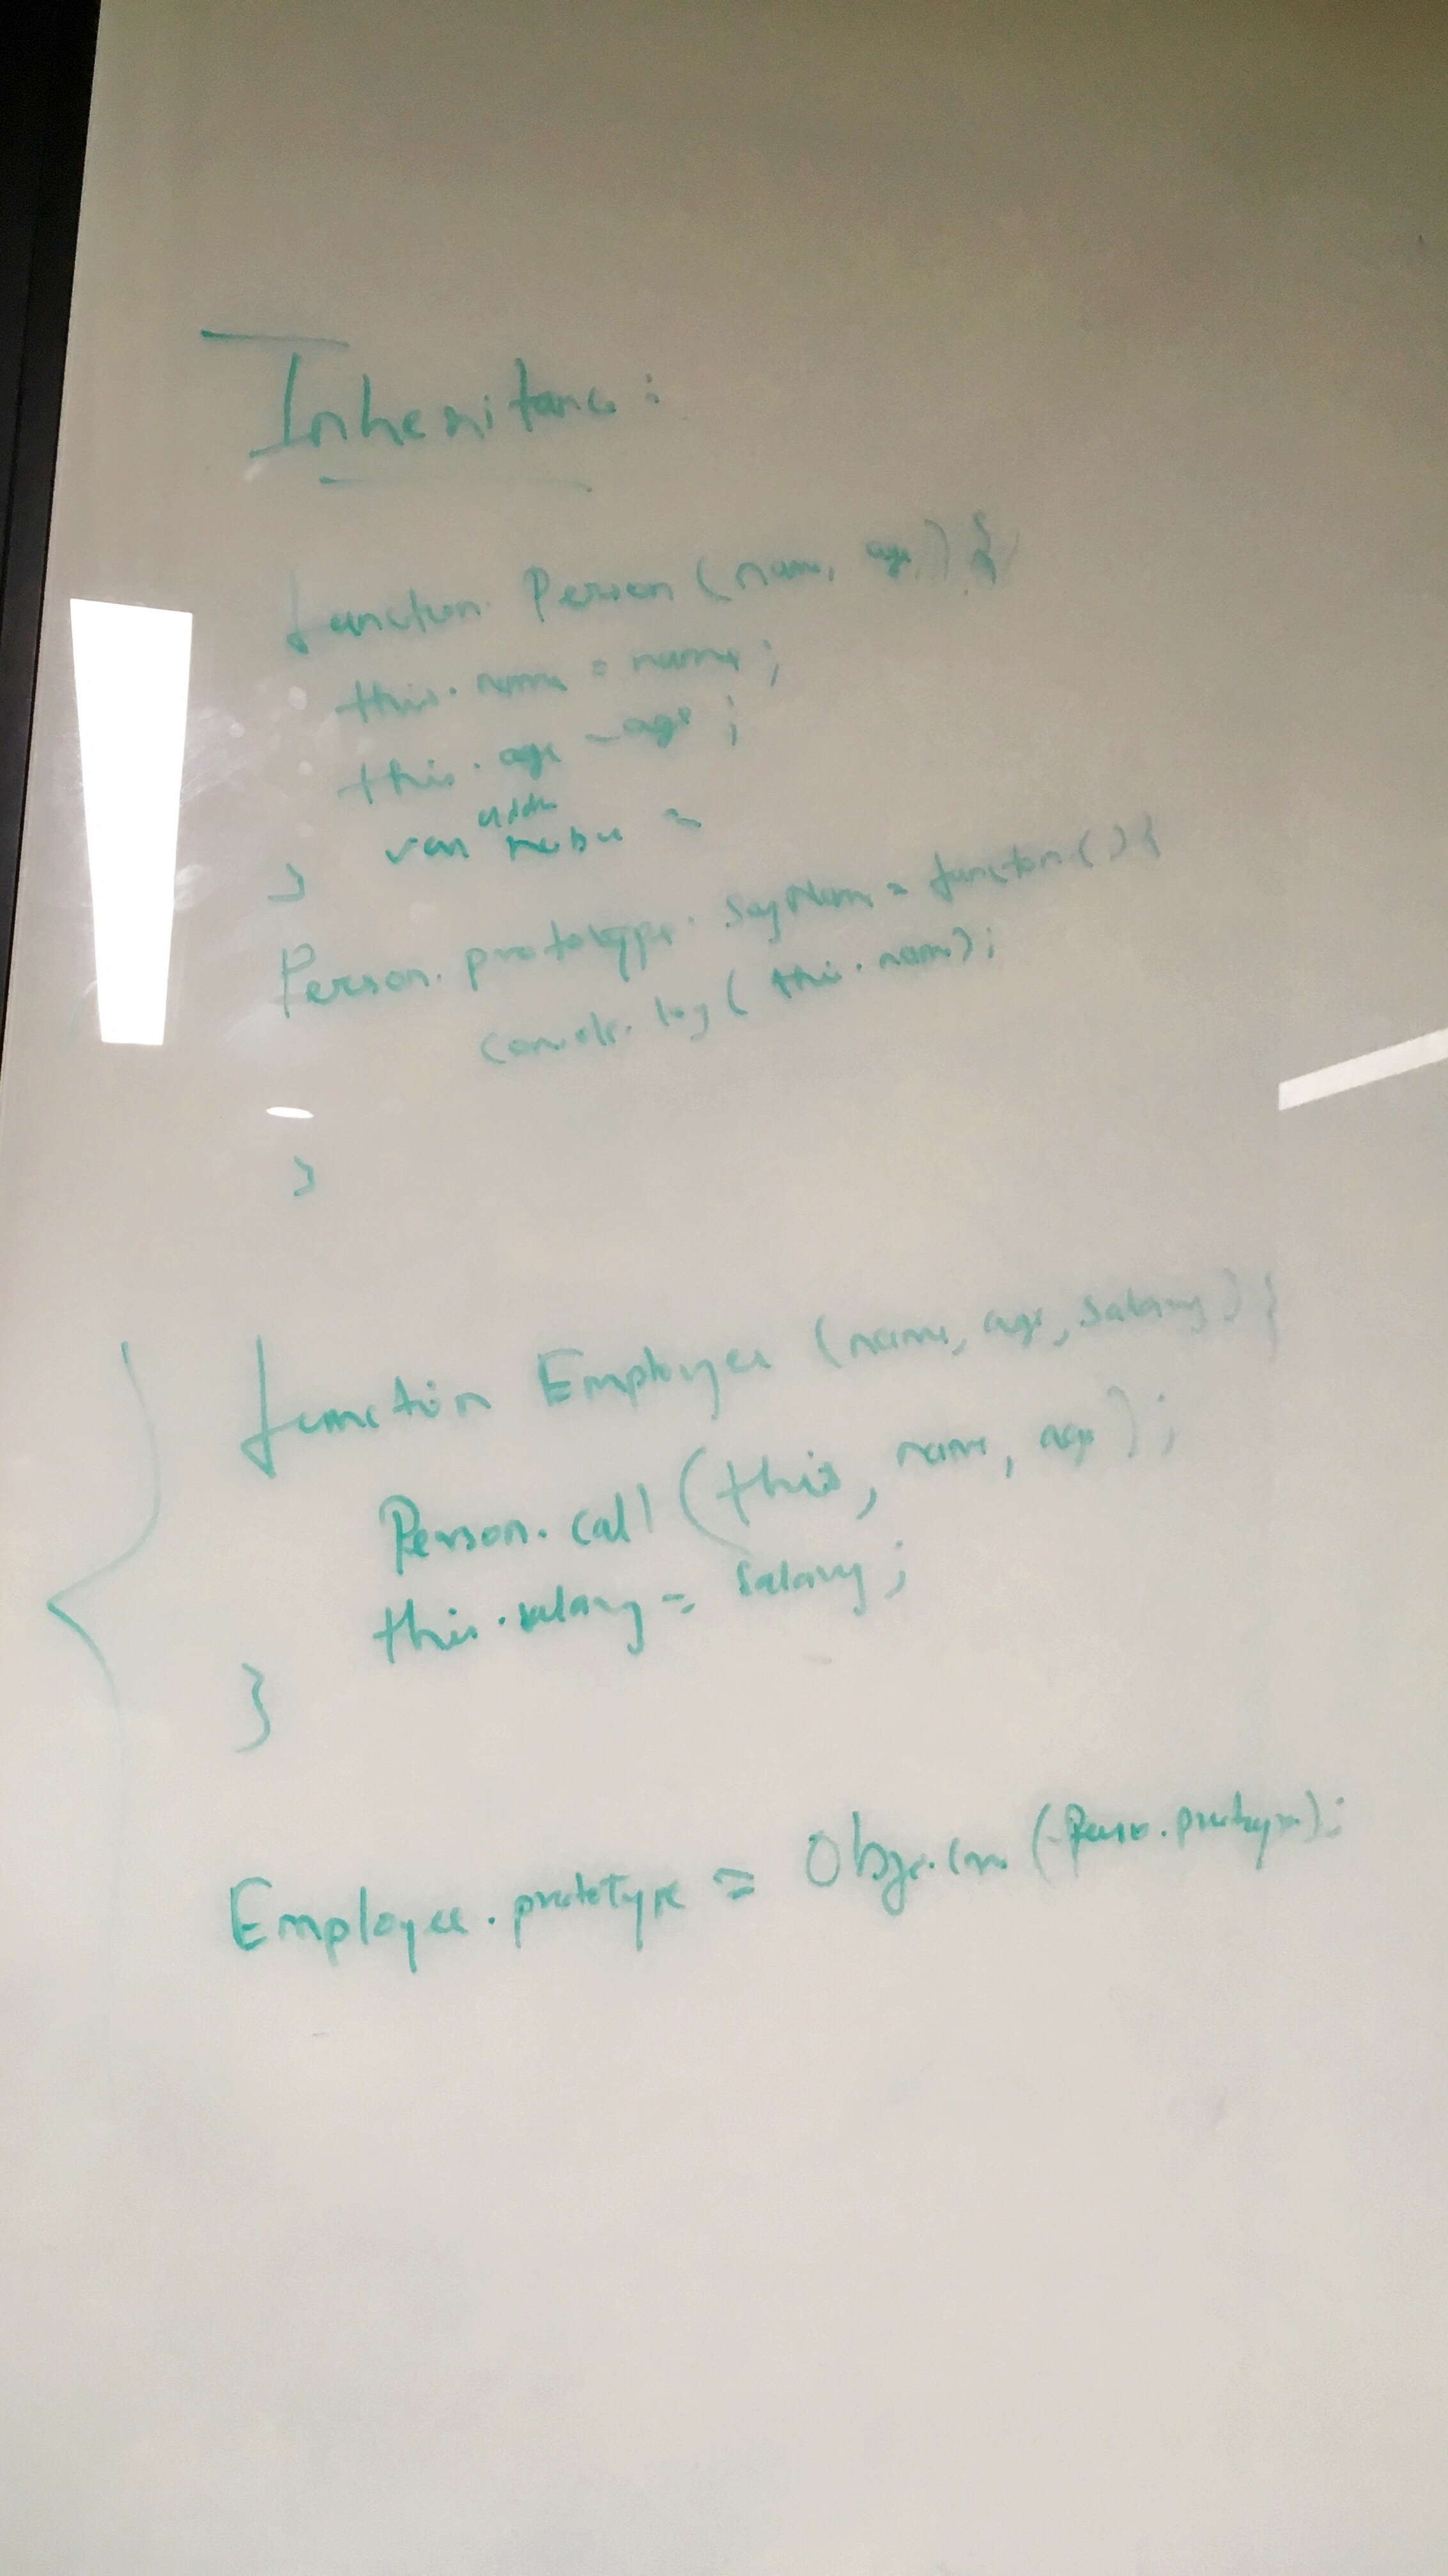 Inheritance:
function Person (name, age) {
this.name = name;
this.age = age;
var
}
Person.prototype.sayName = function() {
console.log (this.name);
}
function Employee (name, age, salary) {
Person.call (this, name, age);
this.salary = salary;
}
Employee.prototype = Obje.Cre (Perso.prototype);